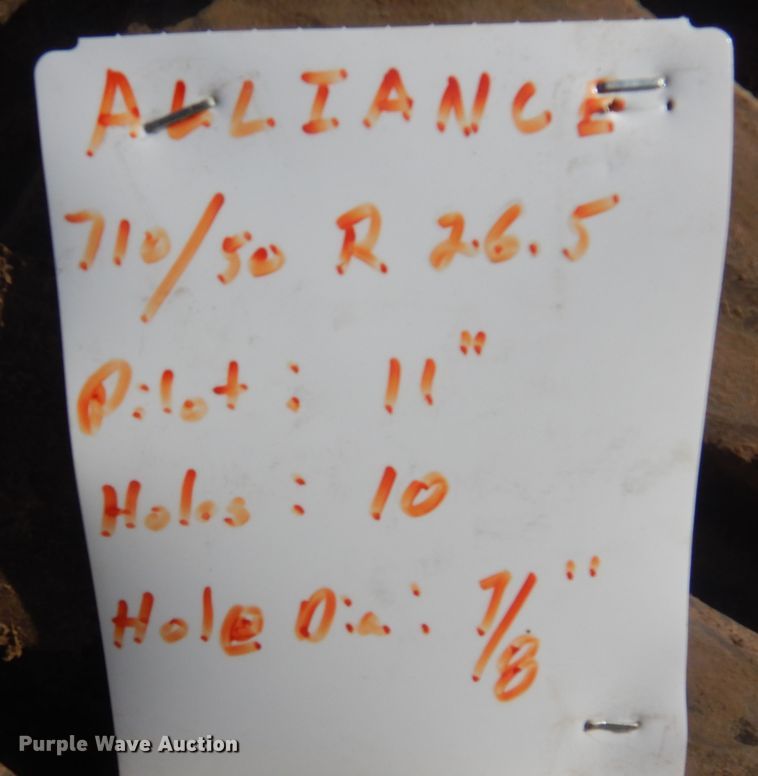 ALLIANCE
710/50 R 26.5
Pilot: 11"
Holes: 10
Hole Dia: 7/8"
Purple Wave Auction